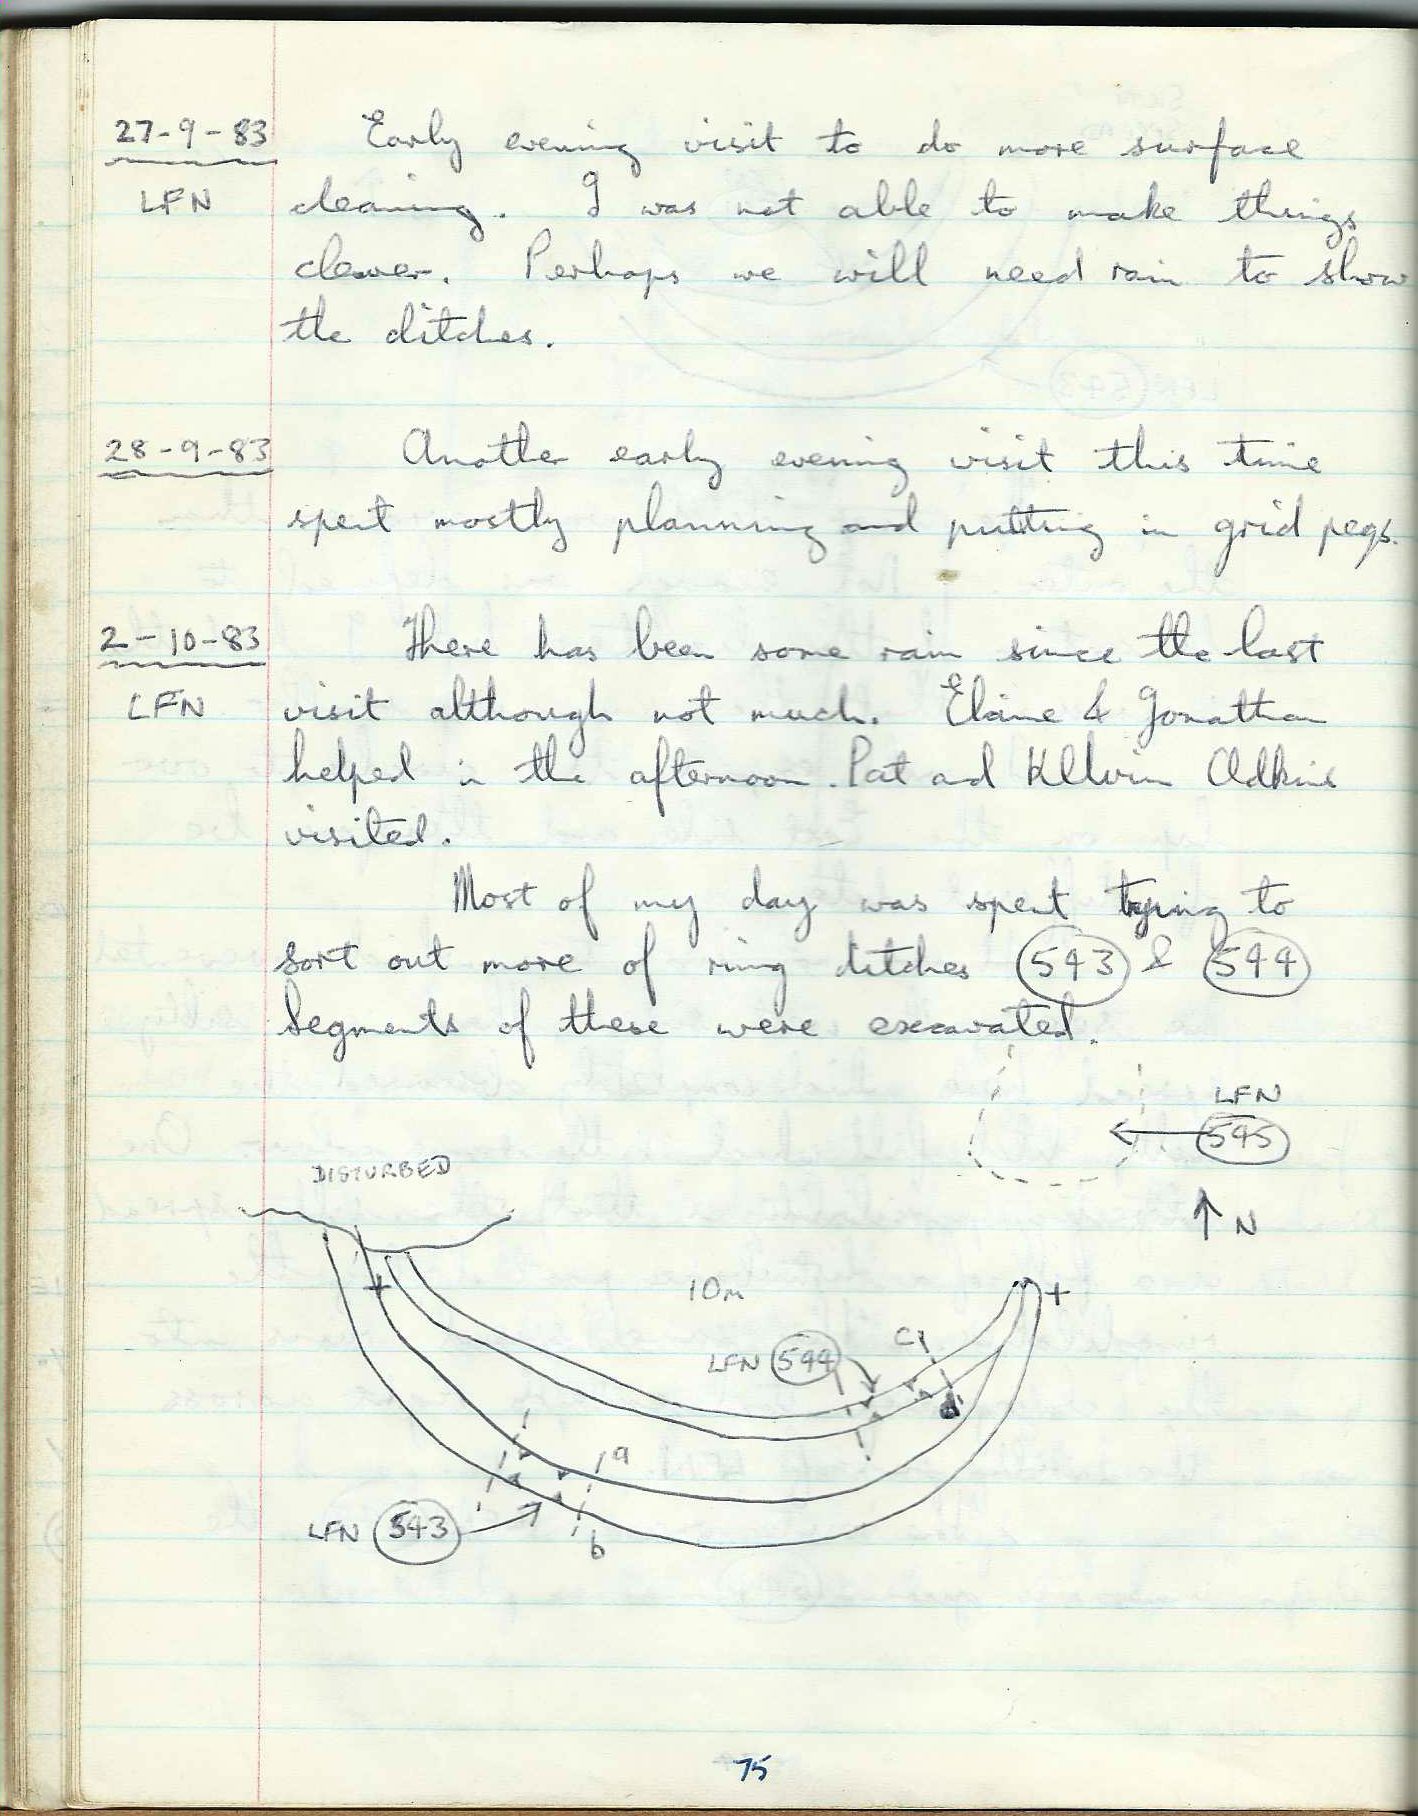 27-9-83
LFN
Early evening visit to do more surface
cleaning. I was not able to make things
clearer. Perhaps we will need rain to show
the ditches.
28-9-83
Another early evening visit this time
spent mostly planning and putting in grid pegs.
2-10-83
LFN
There has been some rain since the last
visit although not much. Elaine & Jonathan
helped in the afternoon. Pat and Kelvin Adkins
visited.
Most of my day was spent trying to
sort out more of ring ditches 543 & 544
Segments of these were excavated.
LFN
545
N
DISTURBED
10m
C
LFN 544
d
a
LFN 543
b
75